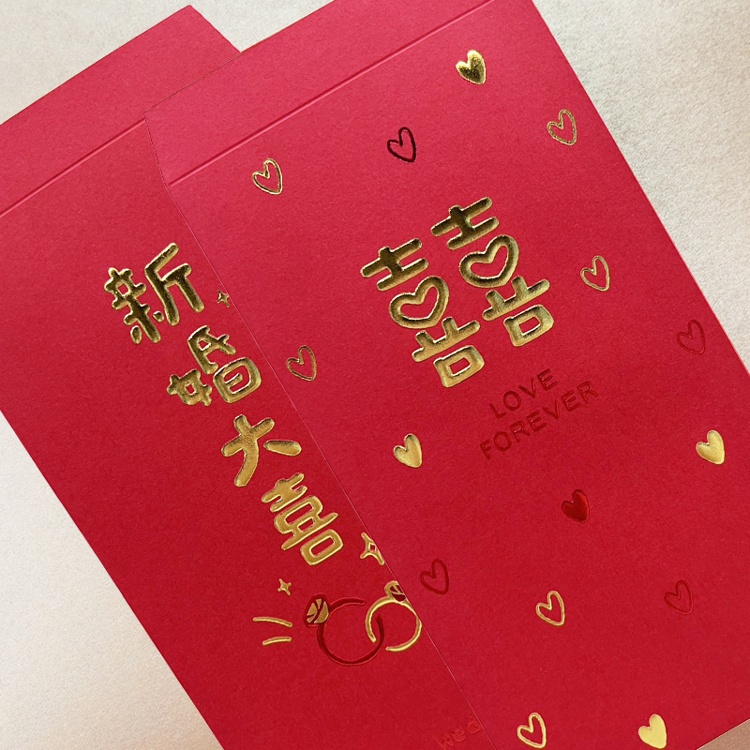 新婚大喜
囍
LOVE
FOREVER